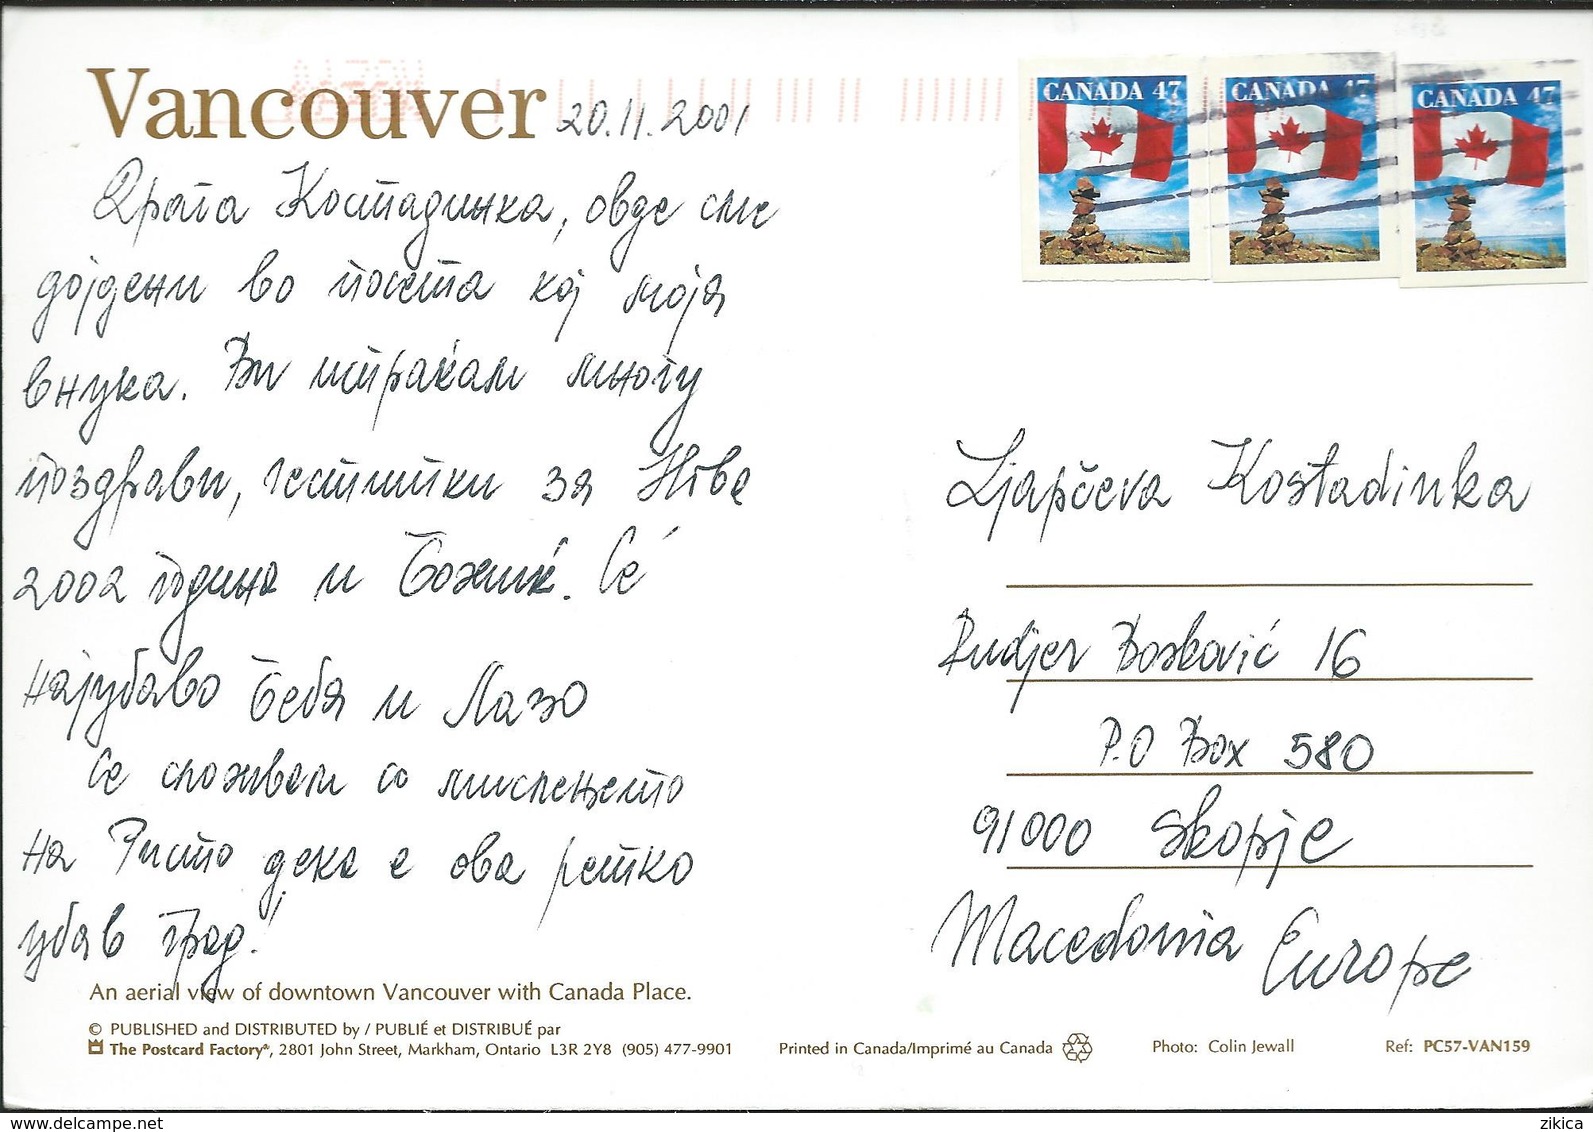 Vancouver
20.11.2001
CANADA 47
CANADA 47
CANADA 47
Драга Костадинка, овде сме
дојдени во посета кај моја
внука. Ви испраќам многу
поздрави, честитки за Нова
2002 година и Божиќ. Сѐ
најубаво Тебе и Лазо
Се сложувам со мислењето
на Ристо дека е ова ретко
убав град!
Ljapčeva Kostadinka
Rudjer Bošković 16
P.O Box 580
91000 Skopje
Macedonia Europe
An aerial view of downtown Vancouver with Canada Place.
© PUBLISHED and DISTRIBUTED by / PUBLIÉ et DISTRIBUÉ par
The Postcard Factory®, 2801 John Street, Markham, Ontario L3R 2Y8 (905) 477-9901
Printed in Canada/Imprimé au Canada
Photo: Colin Jewall
Ref: PC57-VAN159
www.delcampe.net
zikica